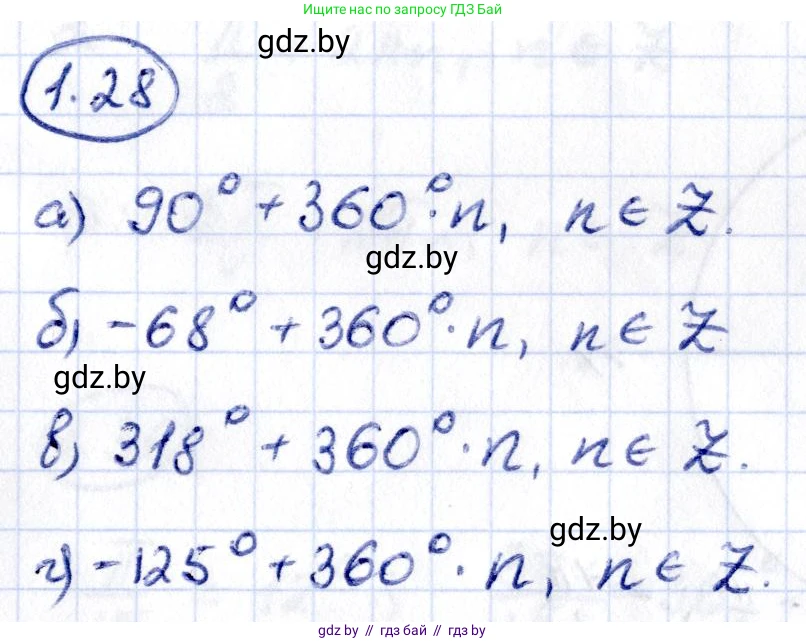 Ищите нас по запросу ГДЗ Бай
gdz.by
1.28
а) 90° + 360°·n, n ∈ Z.
gdz.by
б) -68° + 360°·n, n ∈ Z
gdz.by
в) 318° + 360°·n, n ∈ Z.
gdz.by
г) -125° + 360°·n, n ∈ Z.
gdz.by // гдз бай // gdz.by